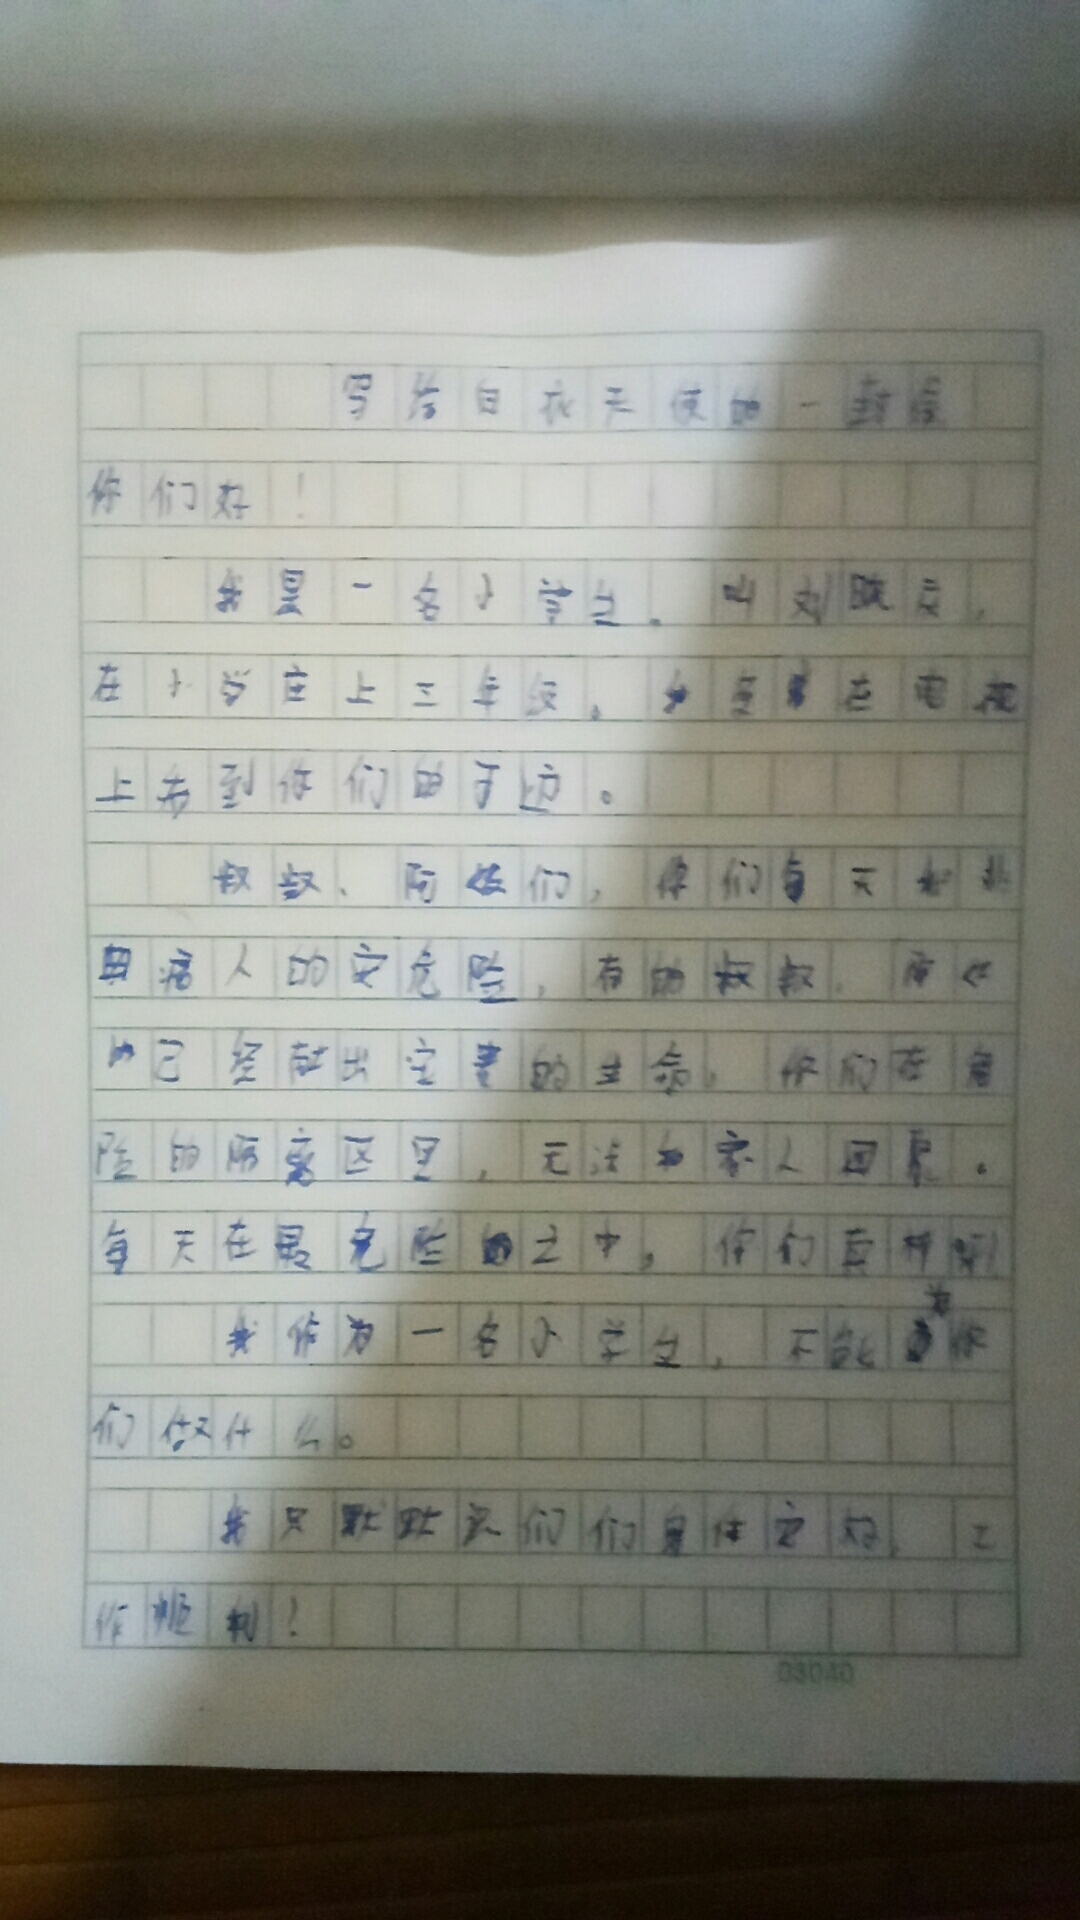 写给白衣天使的一封信
你们好！
我是一名小学生。叫刘
在小学上三年级。在电视
上看到你们的
叔叔、阿姨们，你们每天
病人的危险，有的叔叔、阿
已经献出宝贵的生命，你们在危
险的隔离区里，无法和家人团聚。
每天在最危险的之中，你们真棒
我作为一名小学生，不能为你
们做什么。
我只默默们们身体好，工
作顺利！
03040